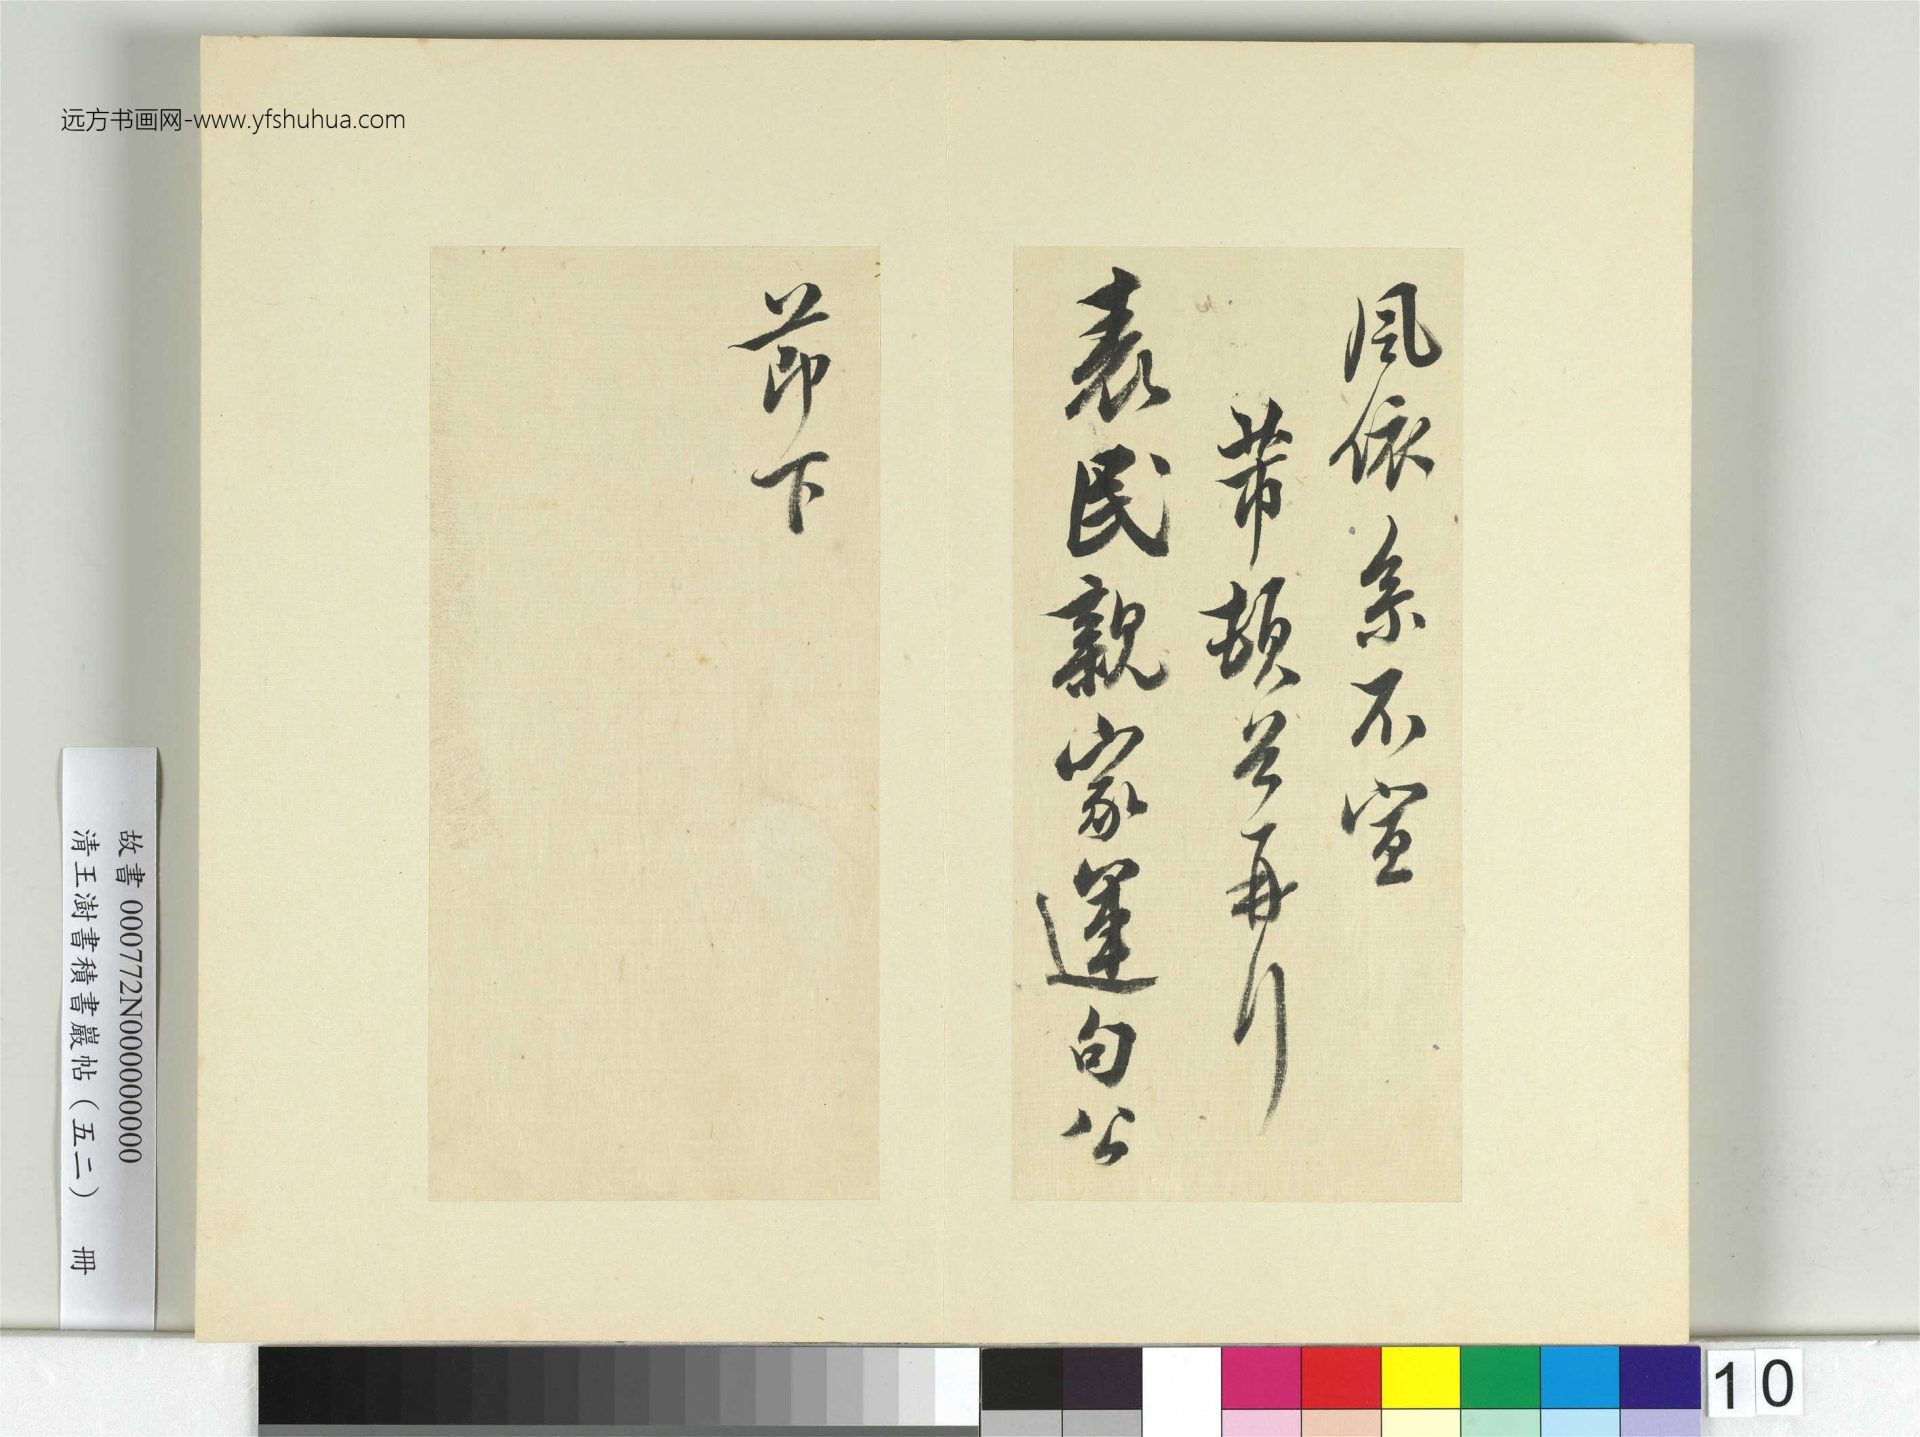 远方书画网-www.yfshuhua.com
風依系不宣
芾頓首再拜
表民親家運句公
莭下
故書 000772N000000000
清王澍書積書巖帖(五二) 冊
10